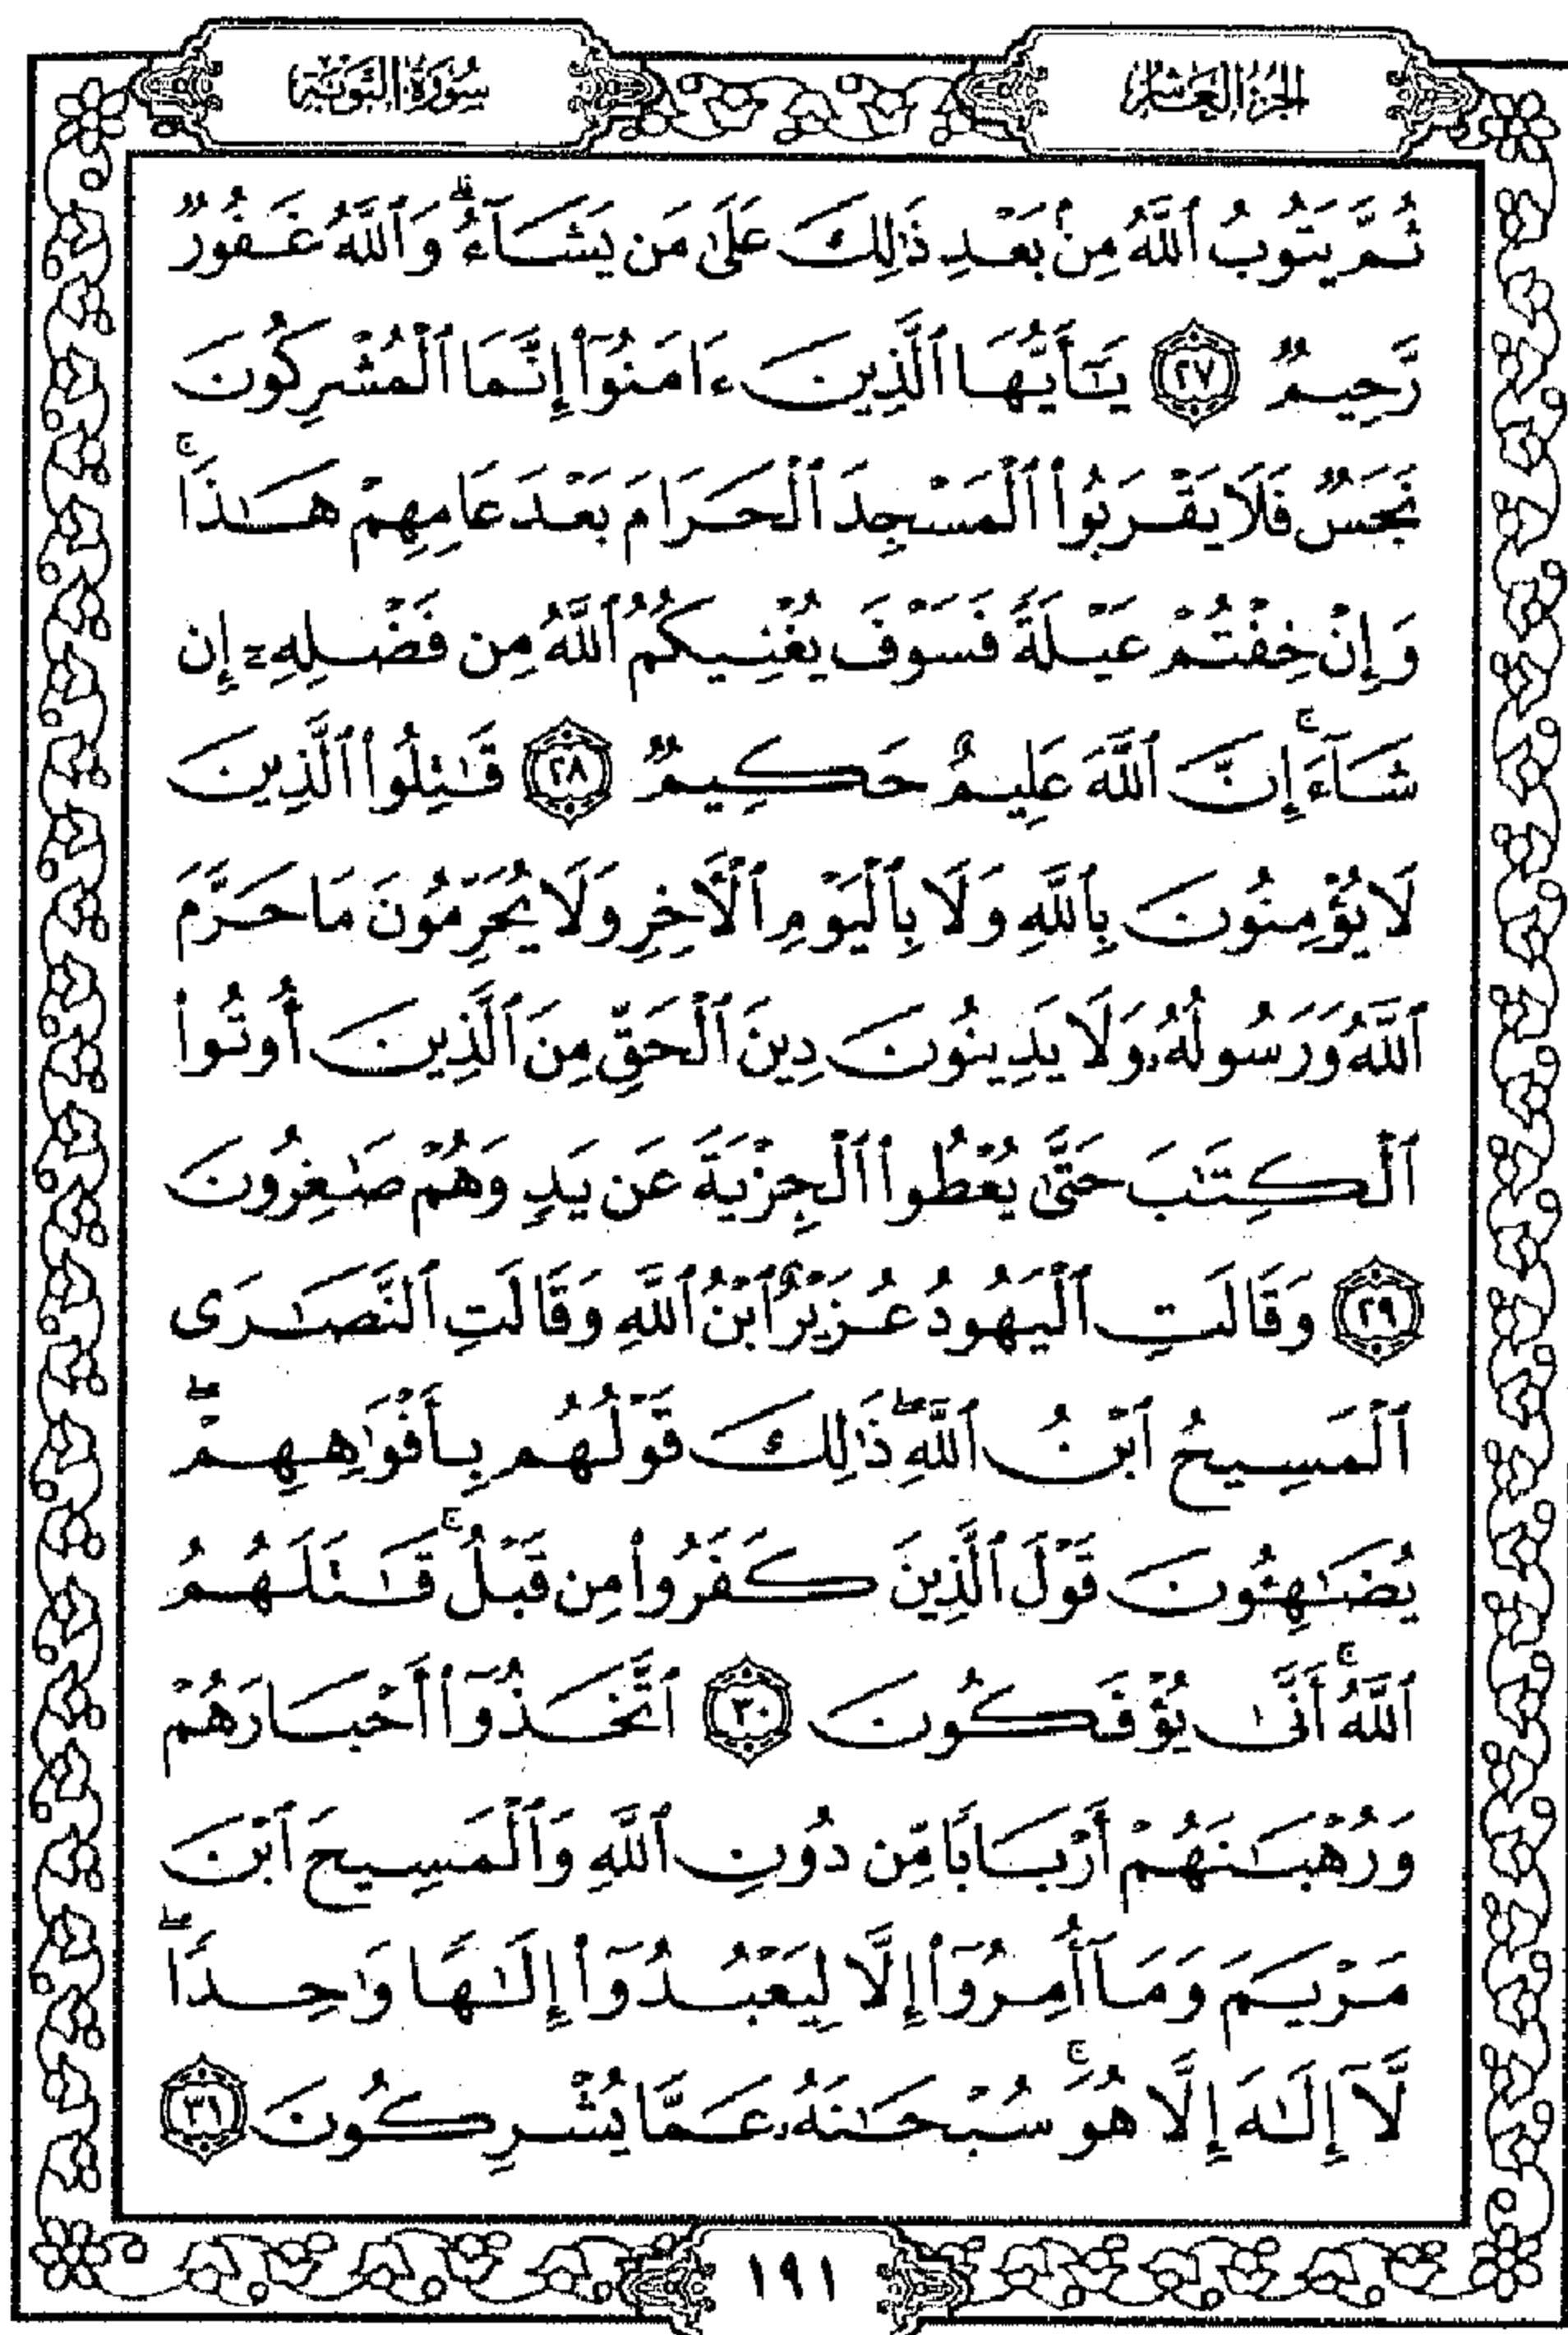 الجزء العاشر
سورة التوبة
ثُمَّ يَتُوبُ ٱللَّهُ مِنۢ بَعْدِ ذَٰلِكَ عَلَىٰ مَن يَشَآءُ ۗ وَٱللَّهُ غَفُورٌ
رَّحِيمٌ ٢٧ يَٰٓأَيُّهَا ٱلَّذِينَ ءَامَنُوٓا۟ إِنَّمَا ٱلْمُشْرِكُونَ
نَجَسٌ فَلَا يَقْرَبُوا۟ ٱلْمَسْجِدَ ٱلْحَرَامَ بَعْدَ عَامِهِمْ هَٰذَا ۚ
وَإِنْ خِفْتُمْ عَيْلَةً فَسَوْفَ يُغْنِيكُمُ ٱللَّهُ مِن فَضْلِهِۦٓ إِن
شَآءَ ۚ إِنَّ ٱللَّهَ عَلِيمٌ حَكِيمٌ ٢٨ قَٰتِلُوا۟ ٱلَّذِينَ
لَا يُؤْمِنُونَ بِٱللَّهِ وَلَا بِٱلْيَوْمِ ٱلْأَخِرِ وَلَا يُحَرِّمُونَ مَا حَرَّمَ
ٱللَّهُ وَرَسُولُهُۥ وَلَا يَدِينُونَ دِينَ ٱلْحَقِّ مِنَ ٱلَّذِينَ أُوتُوا۟
ٱلْكِتَٰبَ حَتَّىٰ يُعْطُوا۟ ٱلْجِزْيَةَ عَن يَدٍ وَهُمْ صَٰغِرُونَ
٢٩ وَقَالَتِ ٱلْيَهُودُ عُزَيْرٌ ٱبْنُ ٱللَّهِ وَقَالَتِ ٱلنَّصَٰرَى
ٱلْمَسِيحُ ٱبْنُ ٱللَّهِ ۖ ذَٰلِكَ قَوْلُهُم بِأَفْوَٰهِهِمْ ۖ
يُضَٰهِـُٔونَ قَوْلَ ٱلَّذِينَ كَفَرُوا۟ مِن قَبْلُ ۚ قَٰتَلَهُمُ
ٱللَّهُ ۚ أَنَّىٰ يُؤْفَكُونَ ٣٠ ٱتَّخَذُوٓا۟ أَحْبَارَهُمْ
وَرُهْبَٰنَهُمْ أَرْبَابًا مِّن دُونِ ٱللَّهِ وَٱلْمَسِيحَ ٱبْنَ
مَرْيَمَ وَمَآ أُمِرُوٓا۟ إِلَّا لِيَعْبُدُوٓا۟ إِلَٰهًا وَٰحِدًا ۖ
لَّآ إِلَٰهَ إِلَّا هُوَ ۚ سُبْحَٰنَهُۥ عَمَّا يُشْرِكُونَ ٣١
١٩١